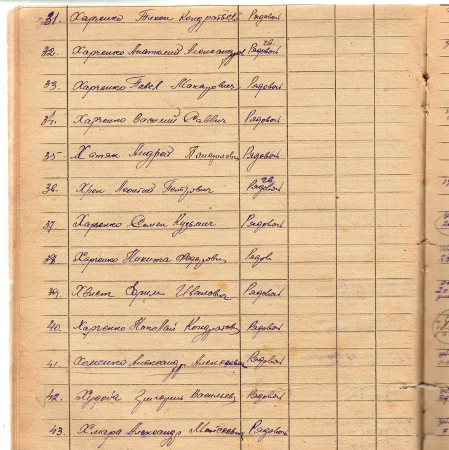 31. Харченко Тихон Кондратьев Рядовой
32. Харченко Анатолий Александров гв. Рядовой
33. Харченко Павел Макарович Рядовой
34. Харченко Василий Саввич Рядовой
35. Хатян Андрей Рядовой
36. Хрен Леонтий Петрович гв. Рядовой
37. Харченко Семен Кузьмич Рядовой
38. Харченко Никита Федорович Рядов
39. Хвист Ефим Иванович Рядовой
40. Харченко Николай Кондратович Рядовой
41. Хоменко Александр Алексеевич Рядовой
42. Григорий Васильев Рядовой
43. Хмара Александр Матвеевич Рядовой